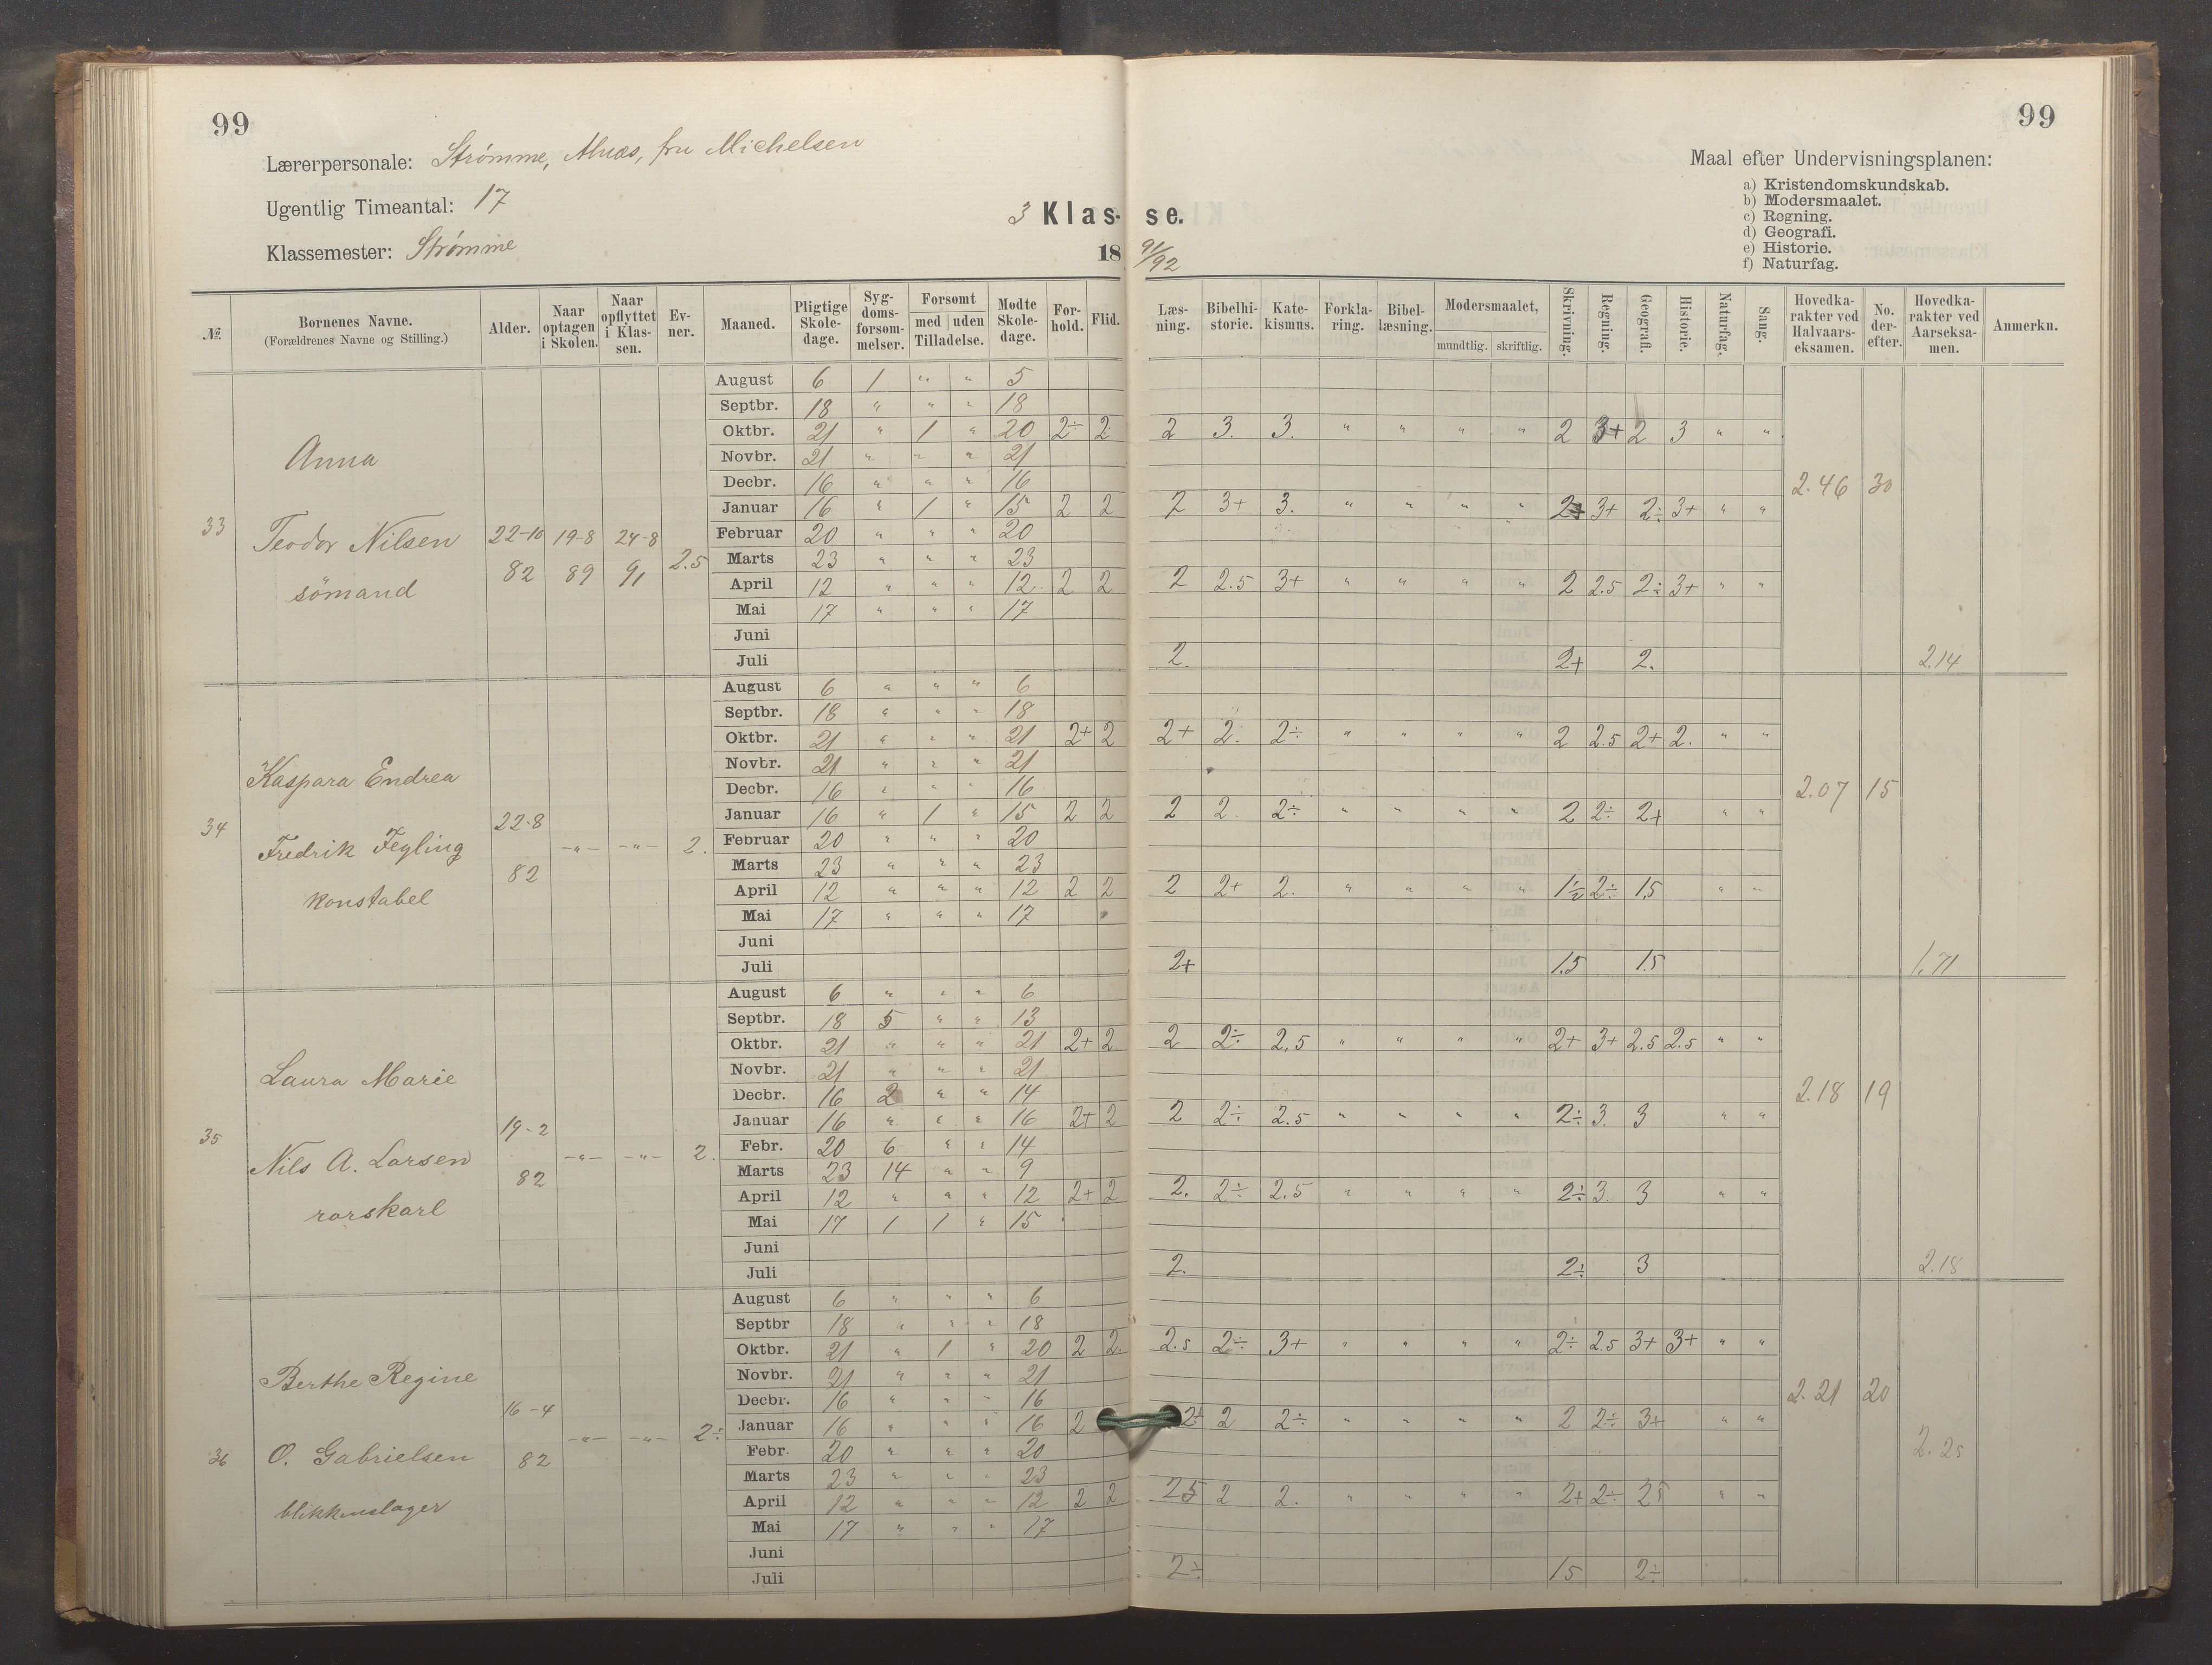 99
99
Lærerpersonale: Strømme, Alnæs, fru Michelsen
Ugentlig Timeantal: 17
Klassemester: Strømme
3 Klas- se.
18 91/92
Maal efter Undervisningsplanen:
a) Kristendomskundskab.
b) Modersmaalet.
c) Regning.
d) Geografi.
e) Historie.
f) Naturfag.
№ Børnenes Navne. (Forældrenes Navne og Stilling.) Alder. Naar optagen i Skolen. Naar opflyttet i Klassen. Evner. Maaned. Pligtige Skoledage. Sygdomsforsømmelser. Forsømt med uden Tilladelse. Mødte Skoledage. Forhold. Flid. Læsning. Bibelhistorie. Katekismus. Forklaring. Bibellæsning. Modersmaalet, mundtlig. skriftlig. Skrivning. Regning. Geografi. Historie. Naturfag. Sang. Hovedkarakter ved Halvaarseksamen. No. derefter. Hovedkarakter ved Aarseksamen. Anmerkn.
33 Anna
Teodor Nilsen
sömand
22-10 82 19-8 89 24-8 91 2.5
August 6 1 " " 5
Septbr. 18 " " " 18
Oktbr. 21 " 1 " 20 2÷ 2 2 3. 3. " " " " 2 3+ 2 3 " "
Novbr. 21 " " " 21
Decbr. 16 " " " 16
2.46 30
Januar 16 " 1 " 15 2 2 2 3+ 3. " " " " 2+ 3+ 2÷ 3+ " "
Februar 20 " " " 20
Marts 23 " " " 23
April 12 " " " 12 2 2 2 2.5 3+ " " " " 2 2.5 2÷ 3+ " "
Mai 17 " " " 17
Juni
Juli 2. 2+ 2. 2.14
34 Kaspara Endrea
Fredrik Fegling
konstabel
22-8 82 -"- -"- 2.
August 6 " " " 6
Septbr. 18 " " " 18
Oktbr. 21 " " " 21 2+ 2 2+ 2. 2÷ " " " " 2 2.5 2+ 2. " "
Novbr. 21 " " " 21
Decbr. 16 " " " 16
2.07 15
Januar 16 " 1 " 15 2 2 2 2. 2÷ " " " " 2 2÷ 2+ " "
Februar 20 " " " 20
Marts 23 " " " 23
April 12 " " " 12 2 2 2 2+ 2. " " " " 1½ 2÷ 1.5 " "
Mai 17 " " " 17
Juni
Juli 2+ 1.5 1.5 1.71
35 Laura Marie
Nils A. Larsen
rorskarl
19-2 82 -"- -"- 2.
August 6 " " " 6
Septbr. 18 5 " " 13
Oktbr. 21 " " " 21 2+ 2 2 2÷ 2.5 " " " " 2+ 3+ 2.5 2.5 " "
Novbr. 21 " " " 21
Decbr. 16 2 " " 14
2.18 19
Januar 16 " " " 16 2+ 2 2 2÷ 2.5 " " " " 2÷ 3. 3 " "
Febr. 20 6 " " 14
Marts 23 14 " " 9
April 12 " " " 12 2+ 2 2. 2÷ 2.5 " " " " 2÷ 3. 3 " "
Mai 17 1 1 " 15
Juni
Juli 2. 2÷ 3 2.18
36 Berthe Regine
O. Gabrielsen
blikkenslager
16-4 82 -"- -"- 2÷
August 6 " " " 6
Septbr 18 " " " 18
Oktbr. 21 " 1 " 20 2 2. 2.5 2÷ 3+ " " " " 2÷ 2.5 3+ 3+ " "
Novbr. 21 " " " 21
Decbr. 16 " " " 16
2.21 20
Januar 16 " " " 16 2 2÷ 2 2÷ " " " " 2 2÷ 3+ " "
Febr. 20 " " " 20
2.25
Marts 23 " " " 23
April 12 " " " 12 2 2 25 2 2. " " " " 2+ 2÷ 25 " "
Mai 17 " " " 17
Juni
Juli 2÷ 15 2÷